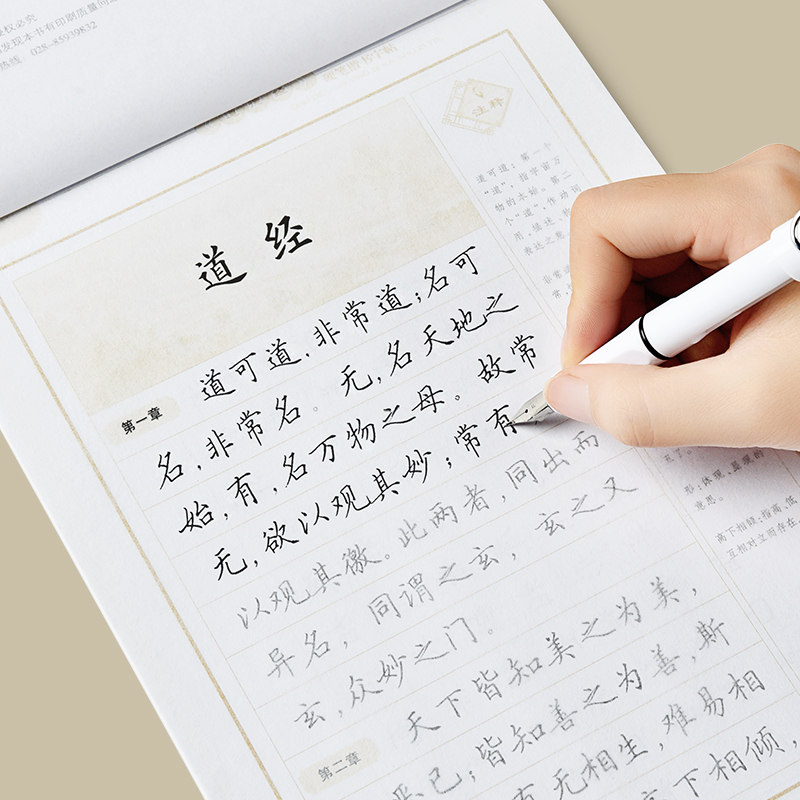 权必究
发现本书有印刷质量问
热线 028-85939832
道经
第一章
道可道,非常道;名可
名,非常名。无,名天地之
始,有,名万物之母。故常
无,欲以观其妙;常有
以观其徼。此两者,同出而
异名,同谓之玄,玄之又
玄,众妙之门。
第二章
天下皆知美之为美,
恶已;皆知善之为善,斯
有无相生,难易相
下相倾,
注释
道可道:第一个
“道”,指宇宙万
物的本始。第二
个“道”,作动词
用,描述、
表达之意
形;体现、显现的
意思。
高下相倾:指高、低
互相对立而存在